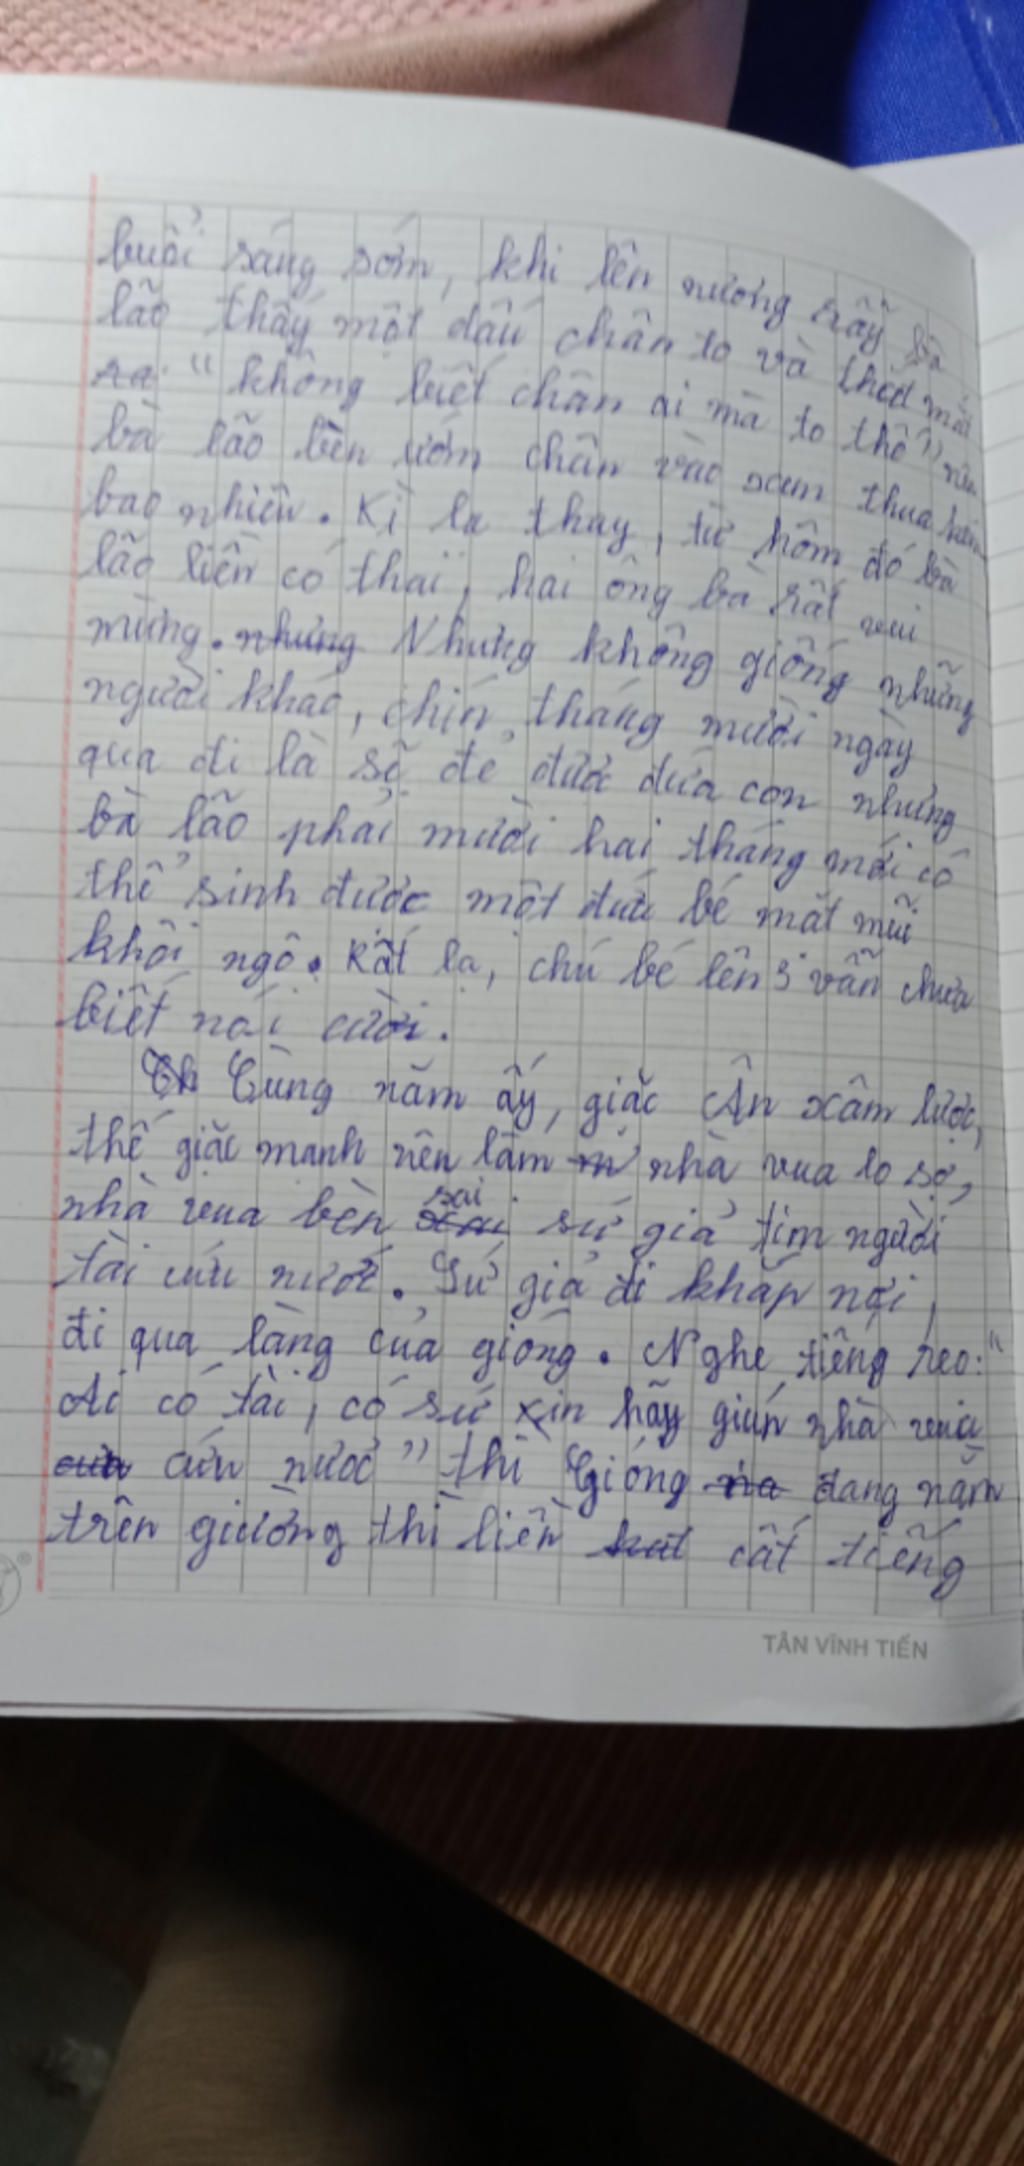 buổi sáng sớm, khi lên nương rẫy bà
lão thấy một dấu chân to và thốt
"không biết chân ai mà to thế" nên
bà lão bèn ướm chân vào xem thua kém
bao nhiêu. Kì lạ thay, từ hôm đó bà
lão liền có thai, hai ông bà rất vui
mừng. nhưng Nhưng không giống những
người khác, chín tháng mười ngày
qua đi là sẽ đẻ đước đứa con nhưng
bà lão phải mười hai tháng mới có
thể sinh được một đứa bé mặt mũi
khôi ngô. Rất lạ, chú bé lên 3 vẫn chưa
biết nói cười.
Ch Cùng năm ấy, giặc Ân xâm lược,
thế giặc mạnh nên làm nhà vua lo sợ,
nhà vua bèn sai sứ giả tìm người
tài cứu nước. Sứ giả đi khắp nơi,
đi qua làng của gióng. Nghe tiếng reo: "
Ai có tài, có sức xin hãy giúp nhà vua
cứu nước" thì Gióng đang nằm
trên giường thì liền cất tiếng
TÂN VĨNH TIẾN